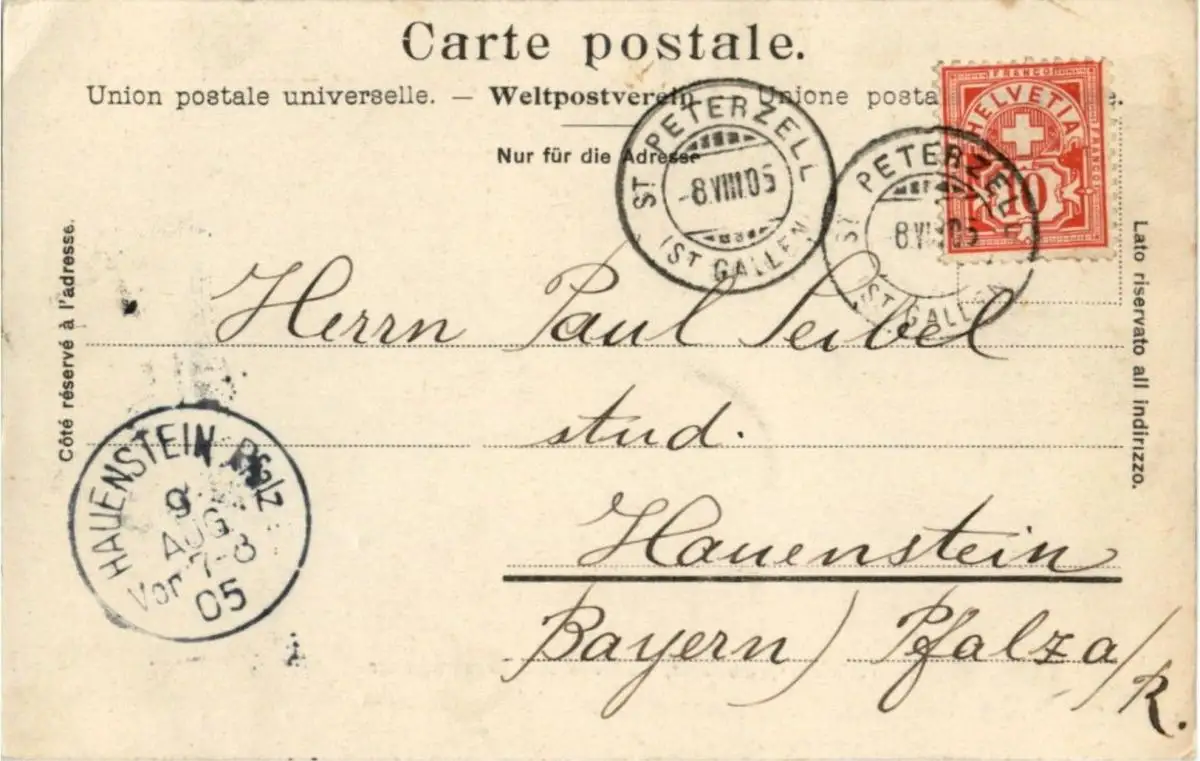 Carte postale.
Union postale universelle. — Weltpostverein Unione posta e.
Nur für die Adresse
FRANCO
HELVETIA
FRANCO
10
ST PETERZELL
-8.VIII.05
(ST GALLEN)
ST PETERZELL
8.VIII.05
(ST GALLEN)
Côté réservé à l'adresse.
Lato riservato all indirizzo.
Herrn Paul Seibel
stud.
Hauenstein
Bayern) Pfalz a/R.
HAUENSTEIN Pfalz
9
AUG
Vor 7-8
05